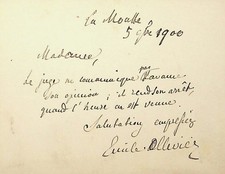 La Moutte
5 9bre 1900
Madame,
Le juge ne communique pas d'avance
son opinion; il rend son arrêt,
quand l'heure en est venue.
Salutation empressée
Emile Ollivier